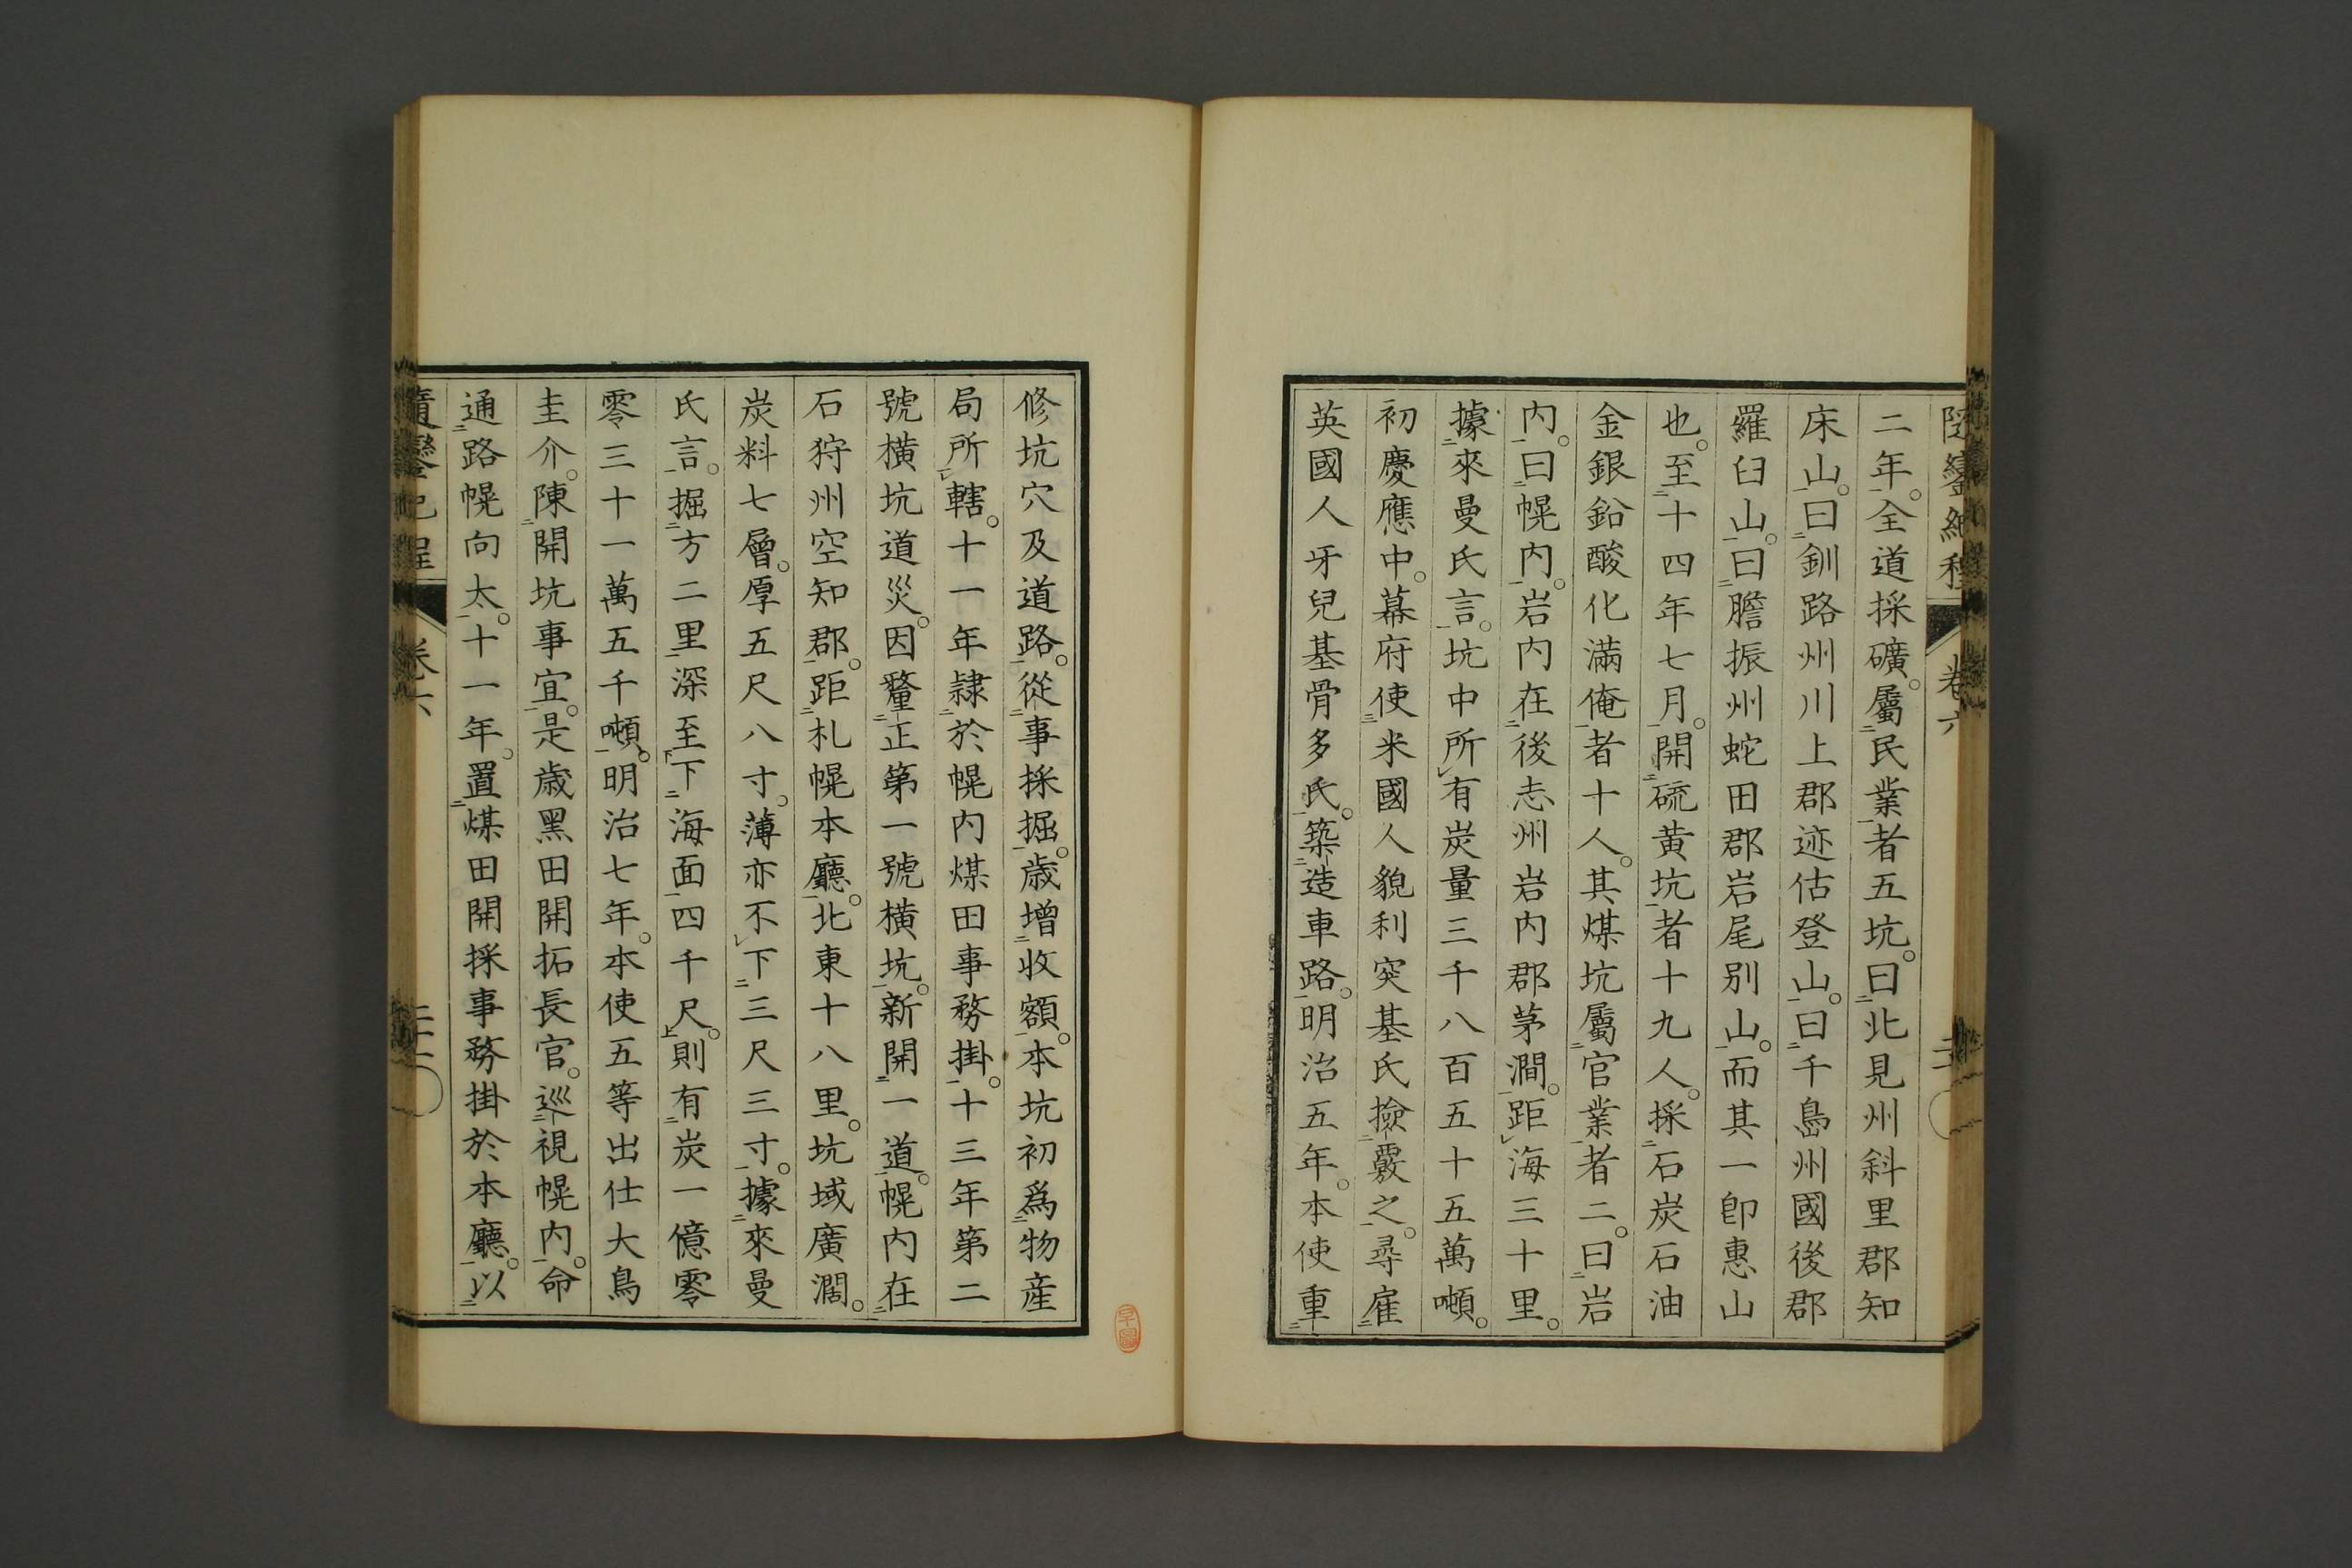 二年。全道採礦。屬民業者五坑。曰北見州斜里郡知
床山。曰釧路州川上郡迹佑登山。曰千島州國後郡
羅臼山。曰膽振州蛇田郡岩尾別山。而其一卽惠山
也。至十四年七月。開硫黃坑者十九人。採石炭石油
金銀鉛酸化滿俺者十人。其煤坑屬官業者二。曰岩
內。曰幌內。岩內在後志州岩內郡茅澗。距海三十里。
據來曼氏言。坑中所有炭量三千八百五十五萬噸。
初慶應中。幕府使米國人貌利突基氏撿覈之。尋雇
英國人牙兒基骨多氏。築造車路。明治五年。本使重
修坑穴及道路。從事採掘。歲增收額。本坑初爲物產
局所轄。十一年隷於幌內煤田事務掛。十三年第二
號橫坑道災。因釐正第一號橫坑。新開一道。幌內在
石狩州空知郡。距札幌本廳。北東十八里。坑域廣濶。
炭料七層。厚五尺八寸。薄亦不下三尺三寸。據來曼
氏言。掘方二里深至下海面四千尺。則有炭一億零
零三十一萬五千噸。明治七年。本使五等出仕大鳥
圭介。陳開坑事宜。是歲黑田開拓長官。巡視幌內。命
通路幌向太。十一年。置煤田開採事務掛於本廳。以